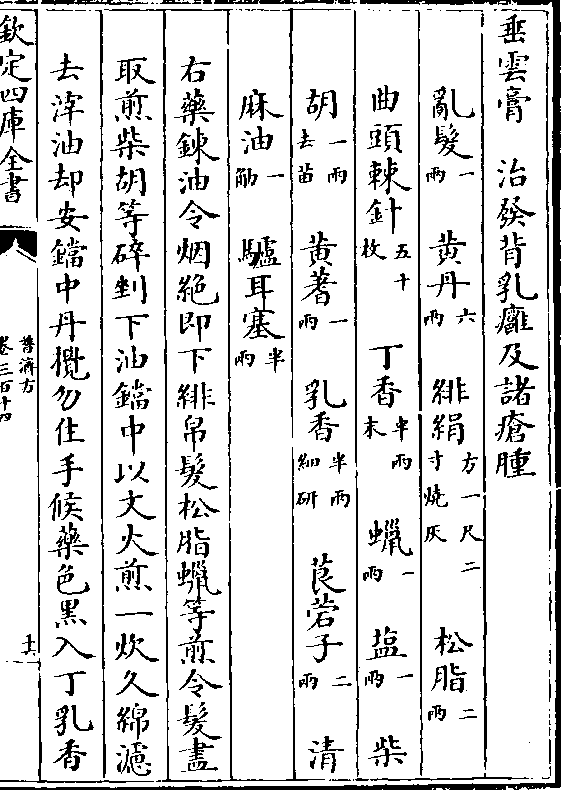 垂雲膏　治發背乳癰及諸瘡腫
亂髮一兩　黄丹六兩　緋絹方一尺二寸燒灰　松脂二兩
曲頭棘針五十枚　丁香半兩末　蠟一兩　塩一兩　柴
胡一兩去苗　黄耆一兩　乳香半兩細研　莨菪子二兩　清
麻油一觔　驢耳塞半兩
右藥鍊油令烟絶即下緋帛髮松脂蠟等煎令髮盡
取煎柴胡等碎剉下油鐺中以文火煎一炊久綿濾
去滓油却安鐺中丹攪勿住手候藥色黑入丁乳香
欽定四庫全書
普濟方
卷三百十四